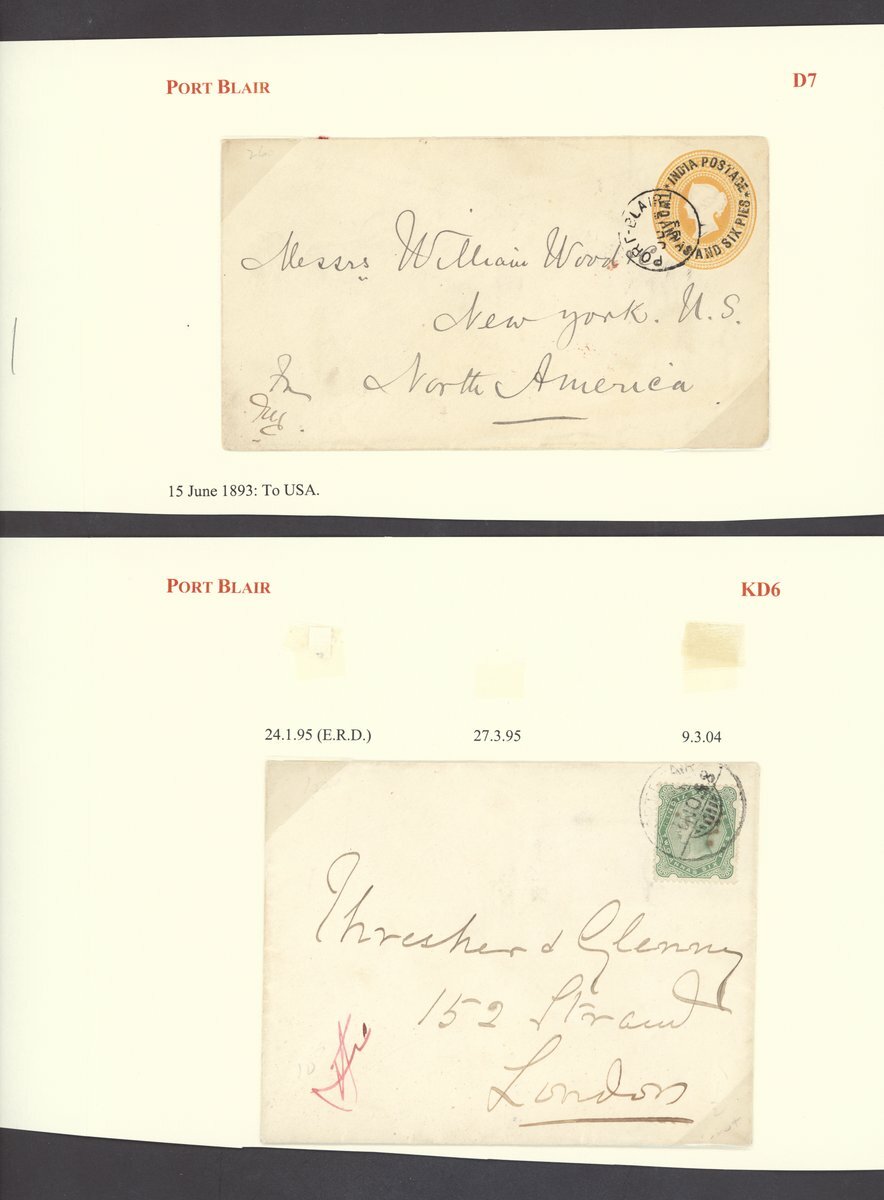 PORT BLAIR
D7
INDIA POSTAGE
TWO ANNAS AND SIX PIES
PORT-BLAIR
Messrs William Wood & Co
New York. U.S.
North America
15 June 1893: To USA.
PORT BLAIR
KD6
24.1.95 (E.R.D.)
27.3.95
9.3.04
Thresher & Glenny
152 Strand
London